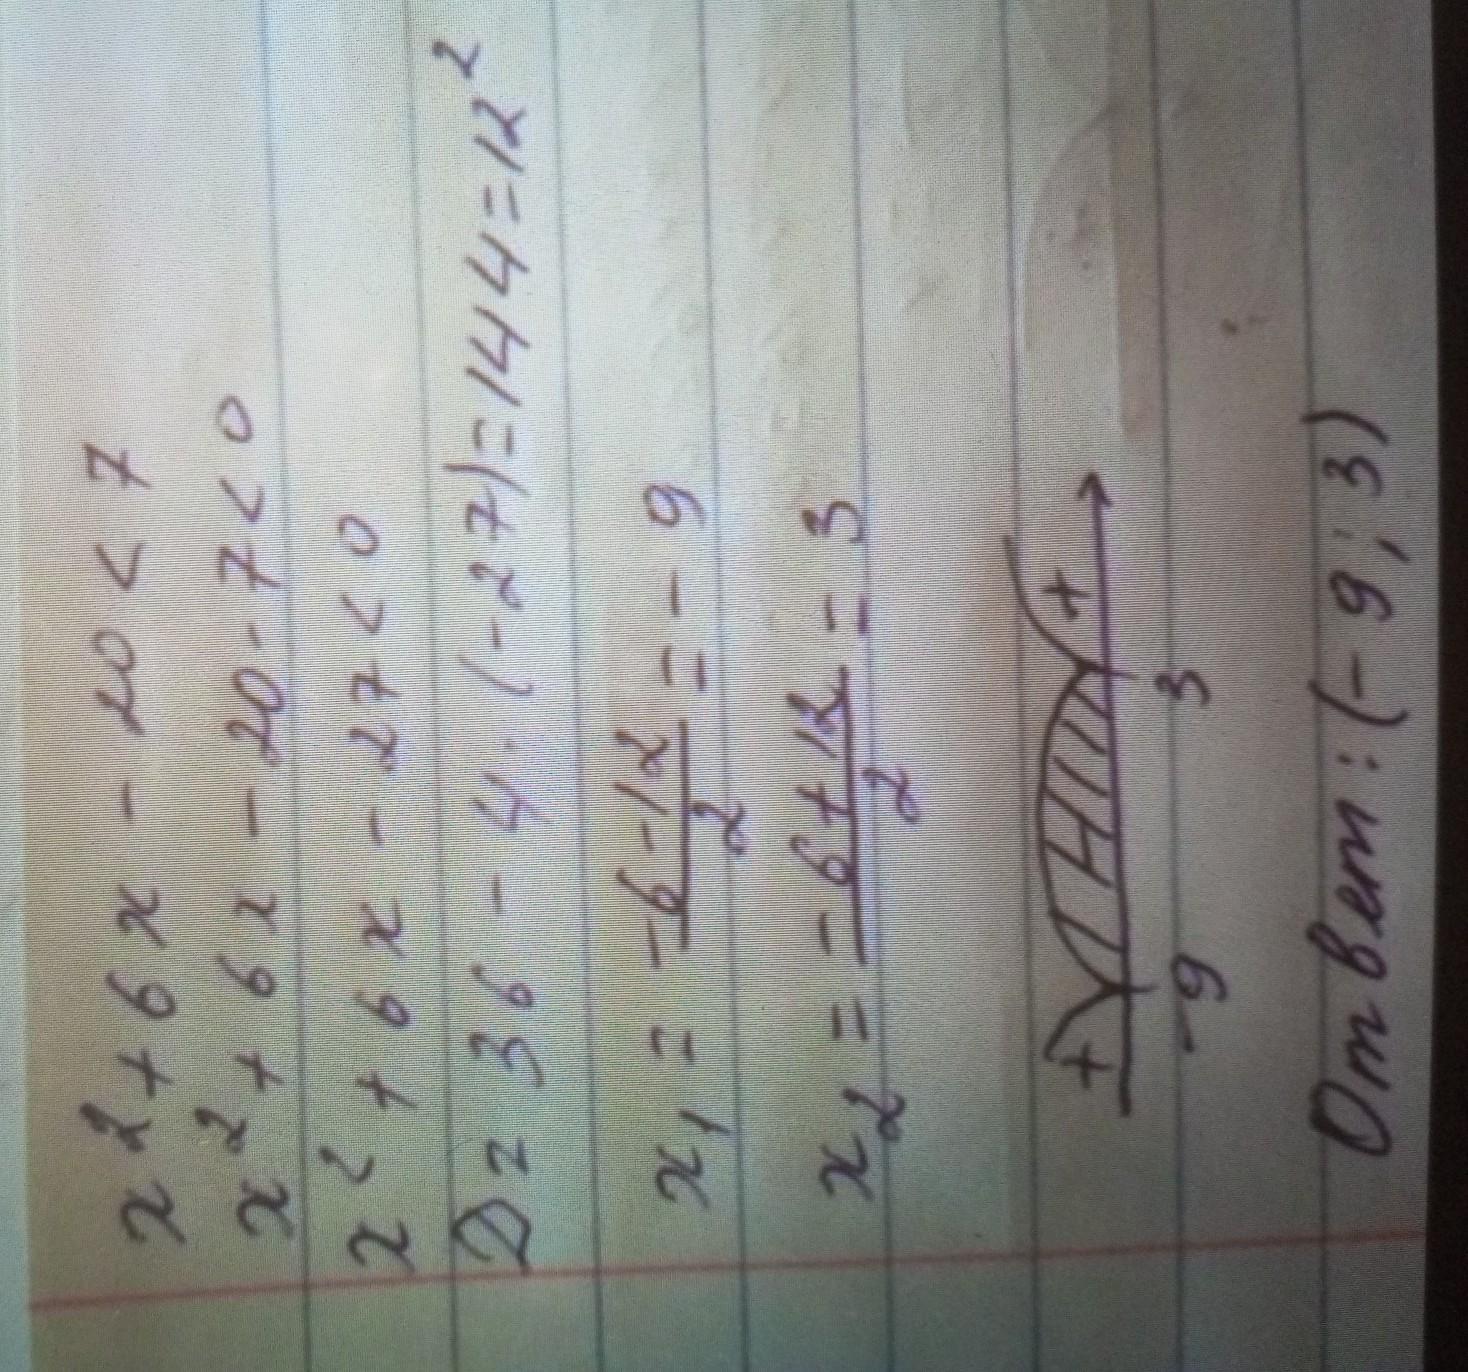 x² + 6x - 20 < 7
x² + 6x - 20 - 7 < 0
x² + 6x - 27 < 0
D = 36 - 4 · (-27) = 144 = 12²
x₁ = (-6-12)/2 = -9
x₂ = (-6+12)/2 = 3
+ - +
-9 3
Ответ: (-9; 3)